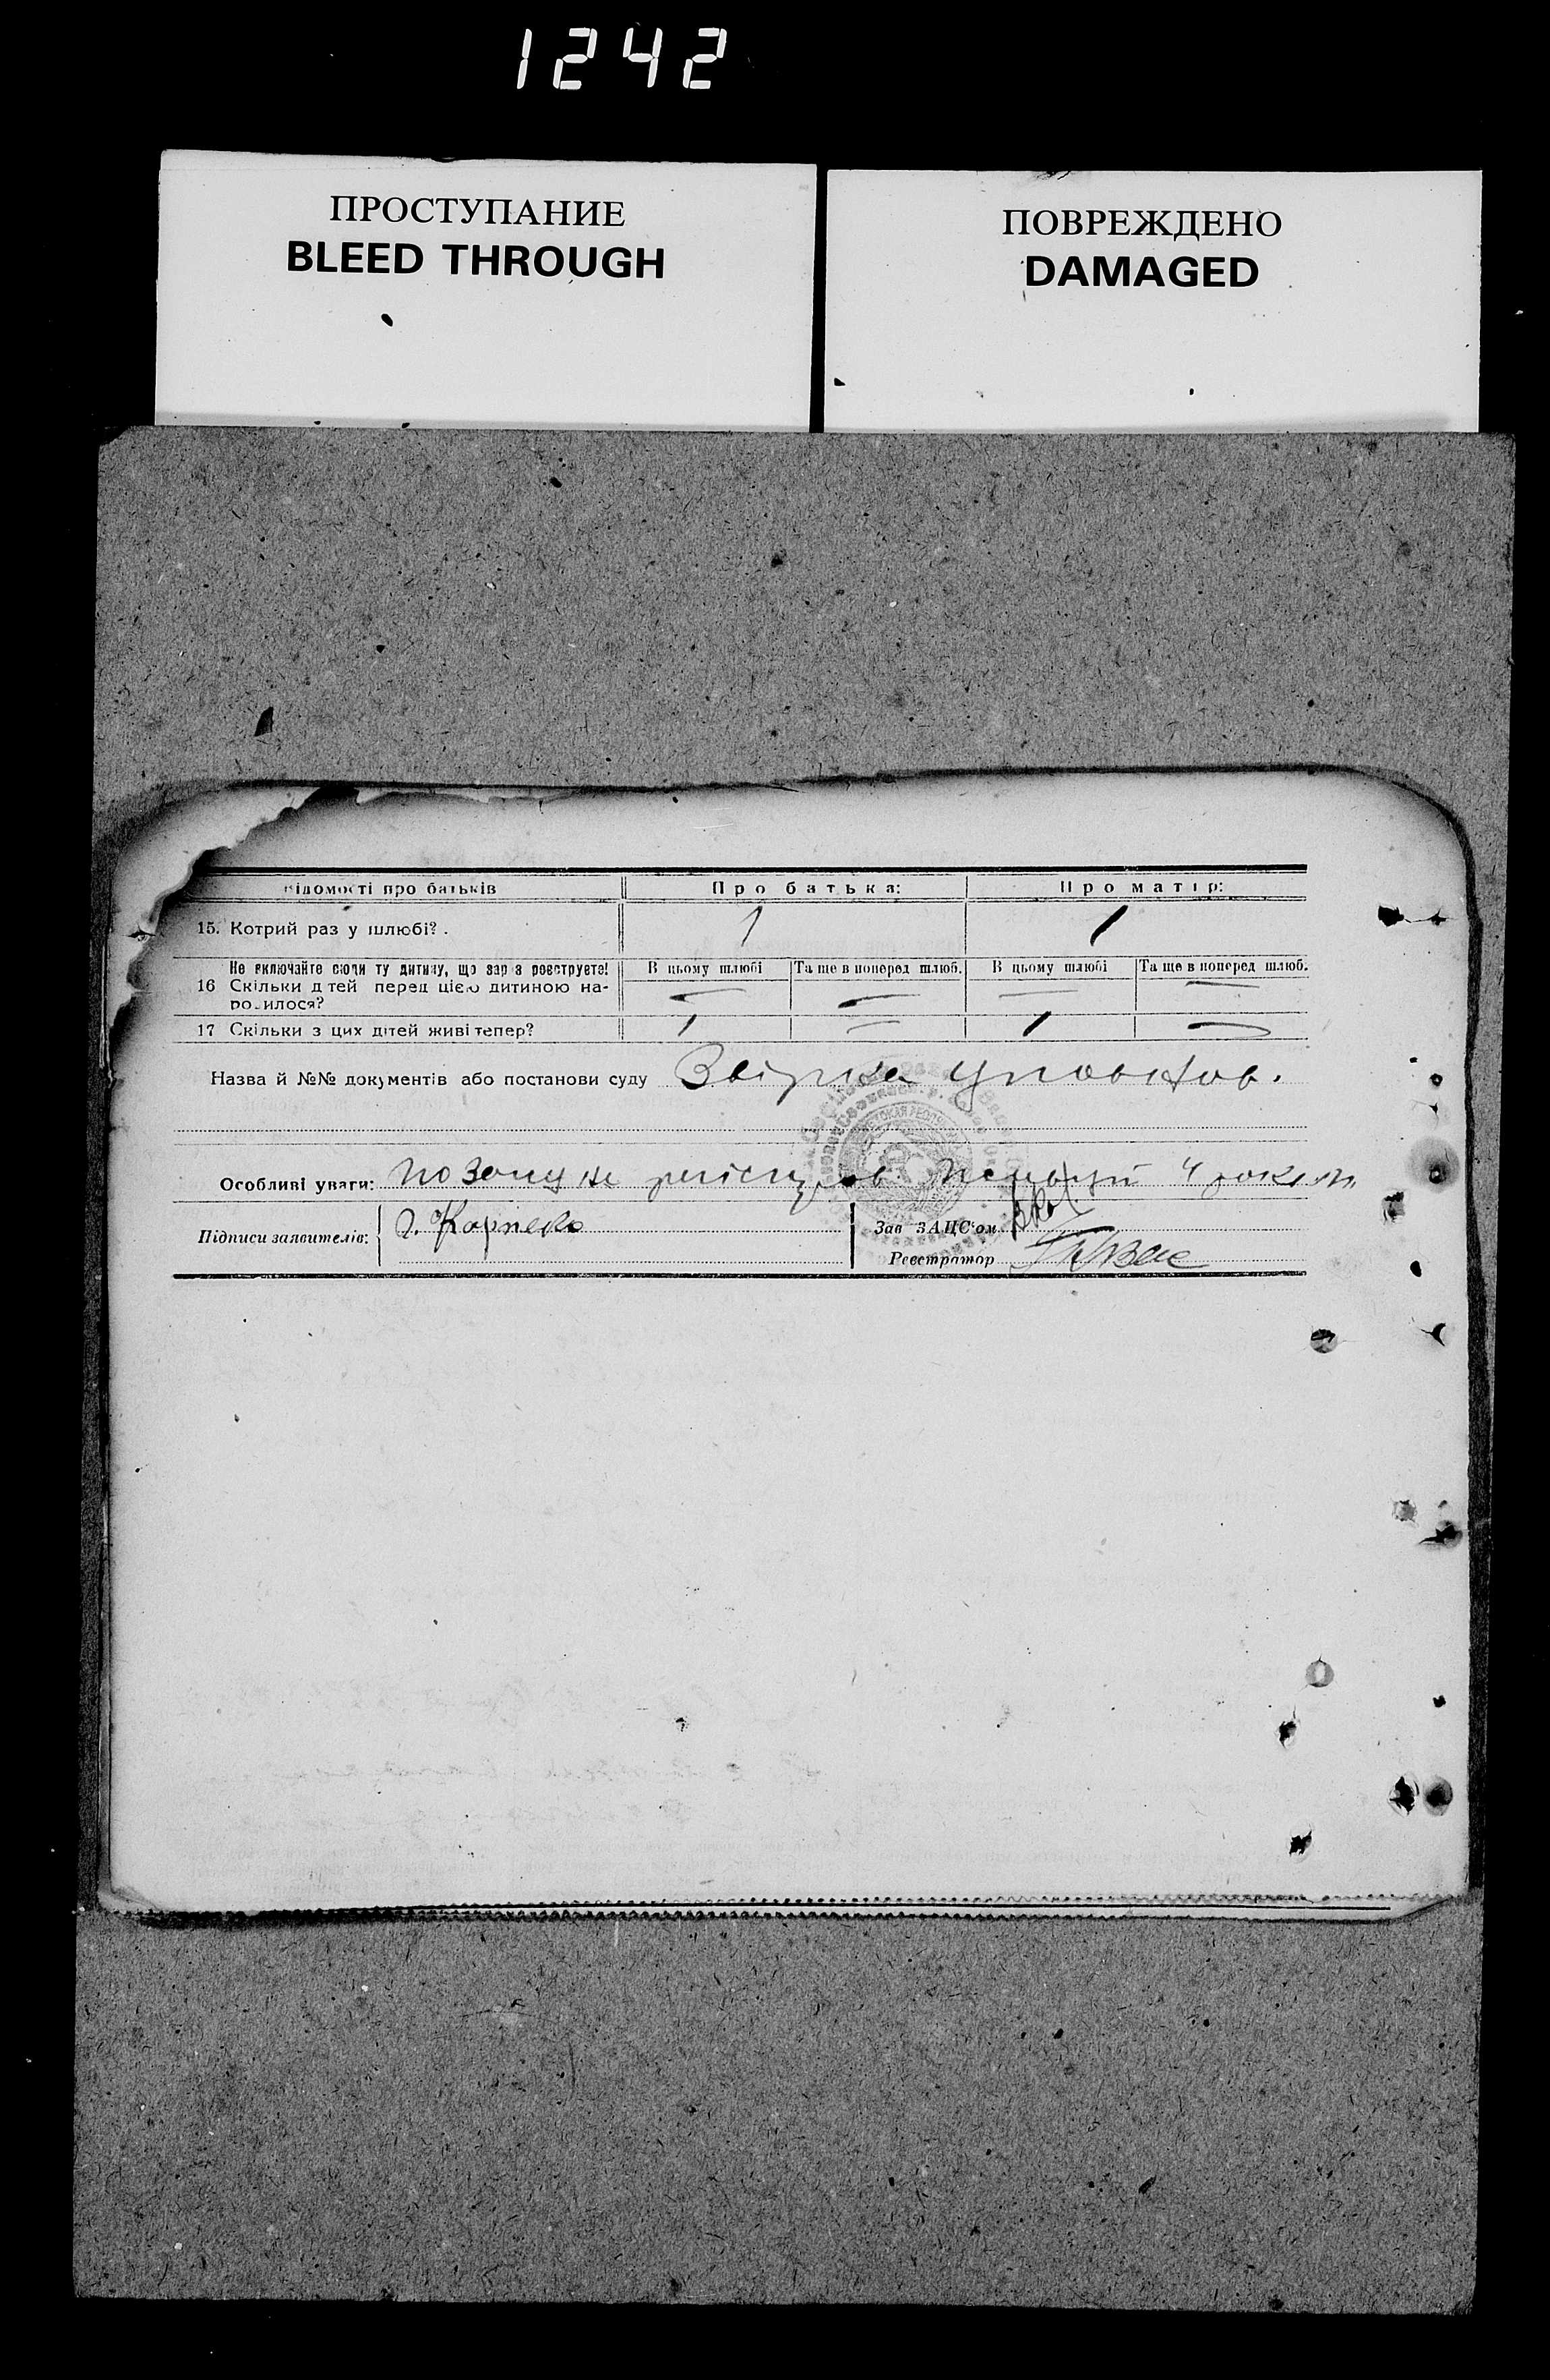 1242
ПРОСТУПАНИЕ
BLEED THROUGH
ПОВРЕЖДЕНО
DAMAGED
ідомості про батьків Про батька: Про матір:
15. Котрий раз у шлюбі? . 1 1
Не включайте сюди ту дитину, що зараз реєструєте!
16 Скільки дітей перед цією дитиною на-
родилося?
В цьому шлюбі Та ще в поперед шлюб. В цьому шлюбі Та ще в поперед шлюб.
— — — —
17 Скільки з цих дітей живі тепер? 1 — 1 —
Назва й №№ документів або постанови суду Звірка
Особливі уваги: 4
Підписи заявителів: Карпенко
Зав ЗАЦС'ом
Реєстратор